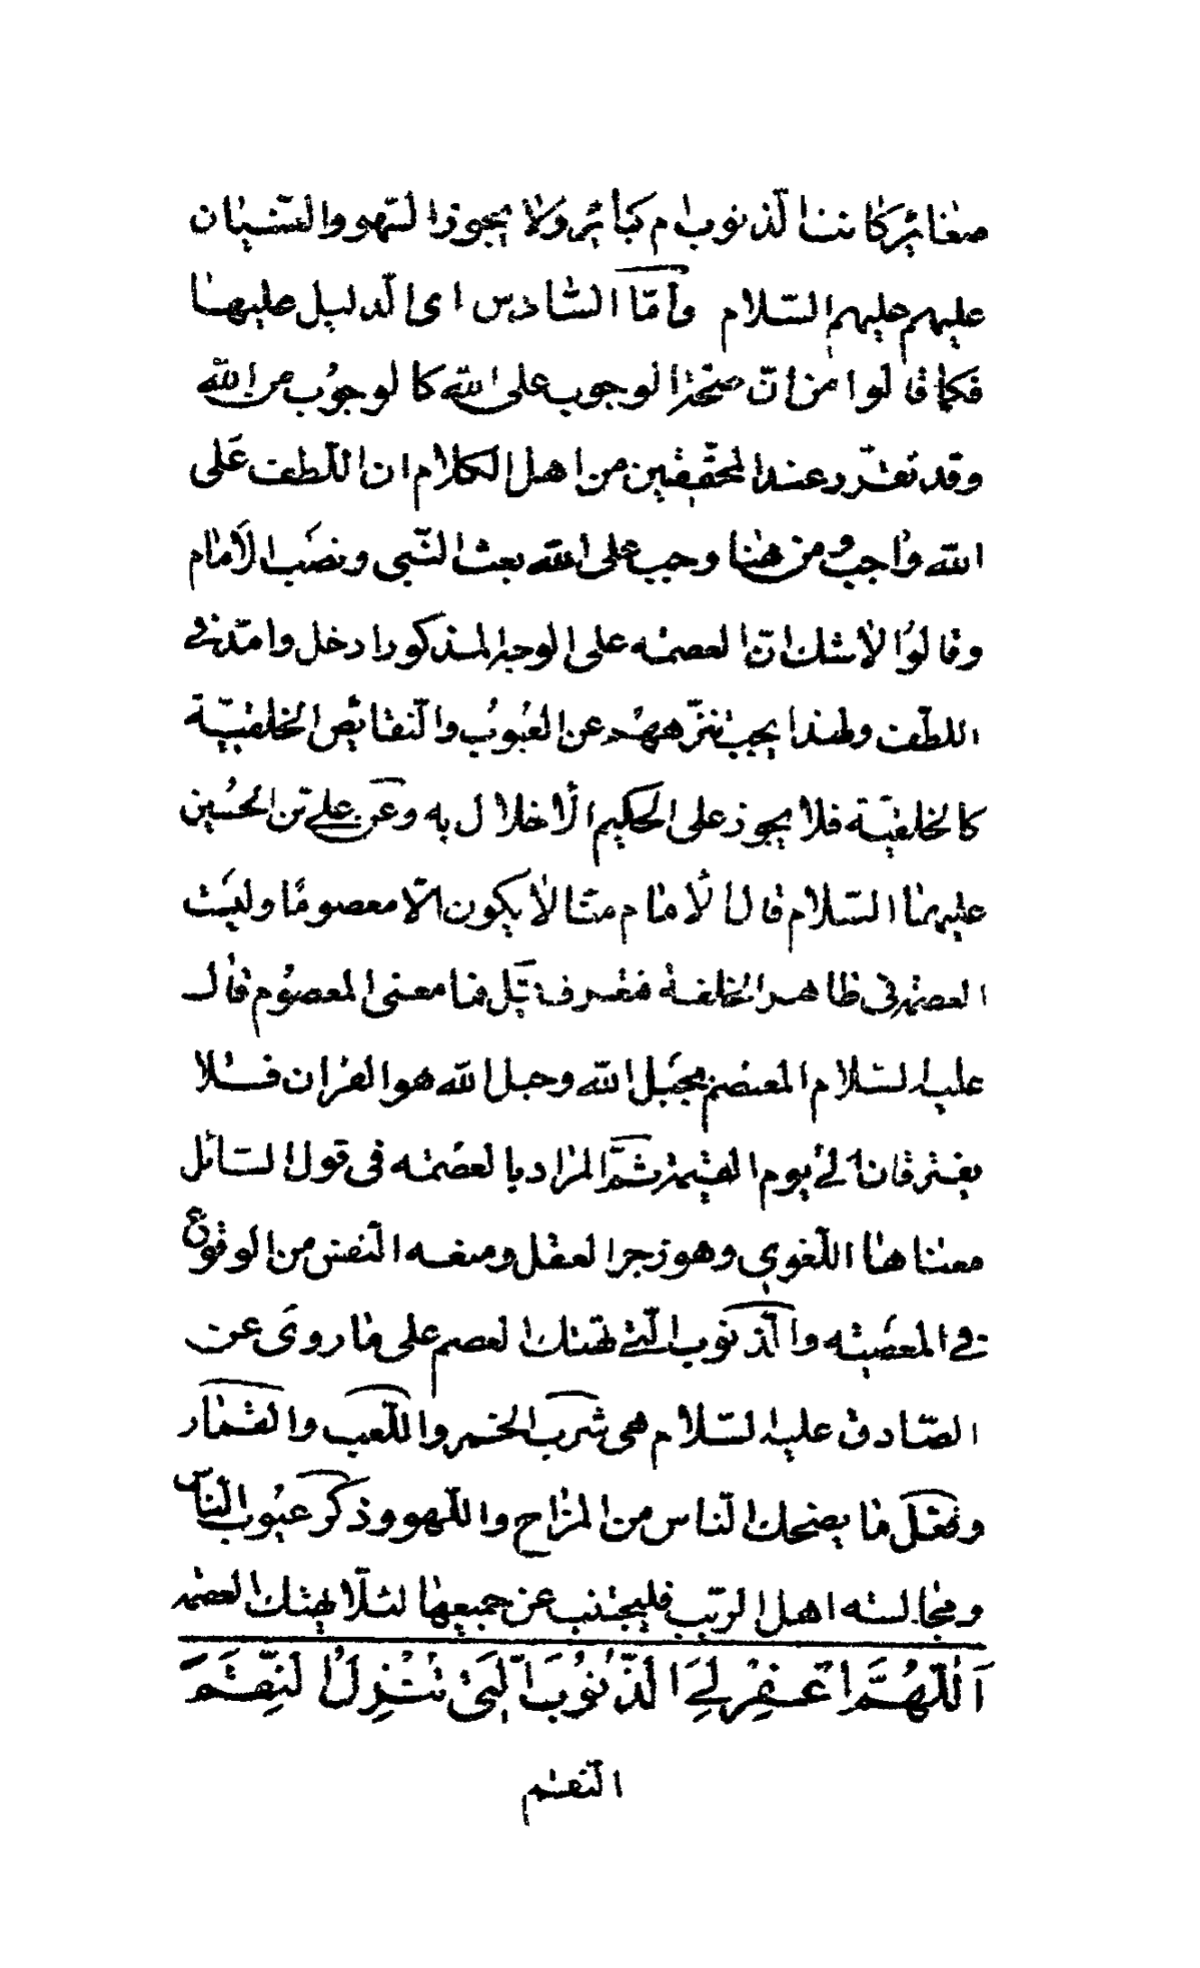 صغائر كانت الذنوب ام كبائر ولا يجوز السهو والنسيان
عليهم عليهم السلام وأمّا السادس اى الدليل عليها
فكما قالوا من أنّ صحّة الوجوب على الله كالوجوب من الله
وقد تقرّر عند المحقّقين من اهل الكلام ان اللطف على
الله واجب ومن هنا وجب على الله بعث النّبى ونصب الأمام
وقالوا لا شك انّ العصمة على الوجه المذكور ادخل وامتد فى
اللطف ولهذا يجب تنزّههم عن العيوب والنّقائص الخلقيّة
كالخلقيّة فلا يجوز على الحكيم الأخلال به وعن على بن الحسين
عليهما السّلام قال الأمام منّا لا يكون الّا معصومًا وليست
العصمة فى ظاهر الخلقة فتعرف قيل فما معنى المعصوم قال
عليه السلام المعتصم بحبل الله وحبل الله هو القران فلا
يفترقان الى يوم القيمة ثمّ المراد بالعصمة فى قول السائل
معناها اللّغوى وهو زجر العقل ومنعه النّفس من الوقوع
فى المعصية والذّنوب الّتى تهتك العصم على ما روى عن
الصّادق عليه السّلام هى شرب الخمر واللّعب والقمار
وفعل ما يضحك النّاس من المزاح واللّهو وذكر عيوب النّاس
ومجالسة اهل الريب فليجتنب عن جميعها لئلّا يهتك العصمة
اَللّٰهُمَّ اغْفِرْ لِىَ الذُّنُوبَ الَّتى تُنْزِلُ النِّقَمَ
النّقم